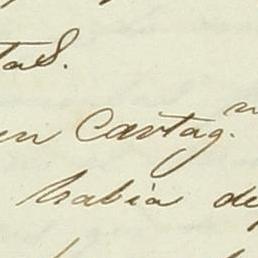 tas.
en Cartag.n
habia de